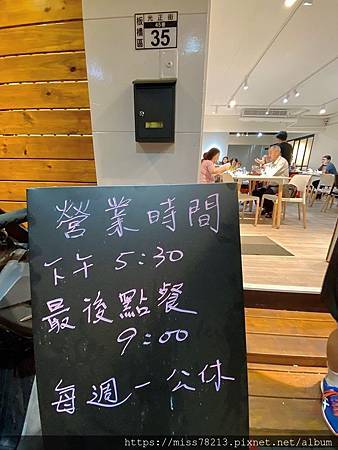 板橋區
光正街
45巷
35
營業時間
下午 5:30
最後點餐
9:00
每週一公休
https://miss78213.pixnet.net/album